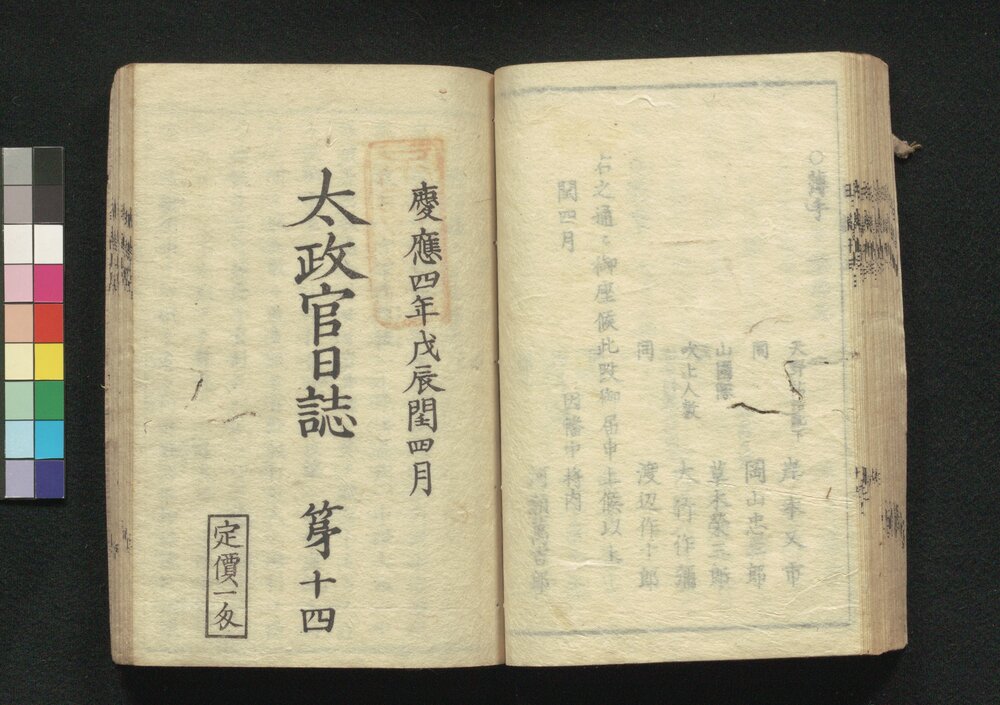 ○薄手
岸本又市
同 岡山忠三郎
山國隊 草木榮三郎
大 作
同 渡辺作十郎
右之通ニ御座候此段御届申上候以上
閏四月
因幡中将内
河 萬吉郎
慶應四年戊辰閏四月
太政官日誌 第十四
定價一匁